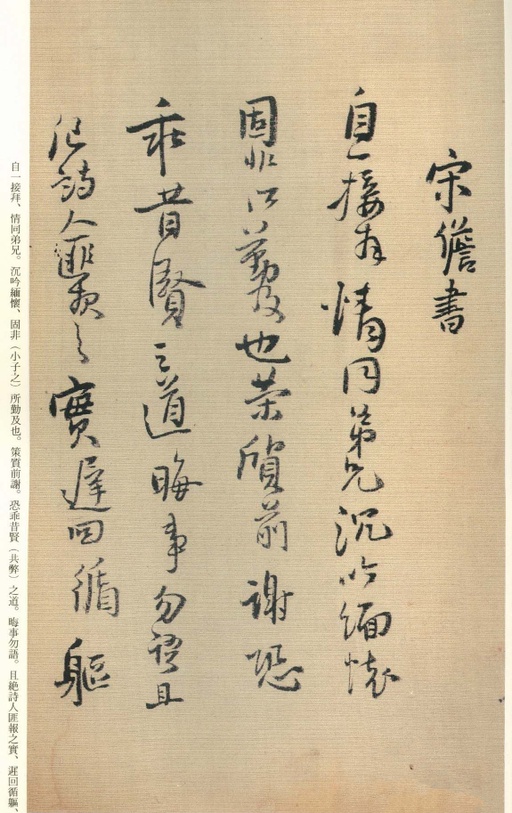 宋儋書
自一接拜情同弟兄沉吟緬懷
固非所勤及也策質前謝恐
乖昔賢之道晦事勿語且
絕詩人匪報之實遲回循軀
自一接拜、情同弟兄。沉吟緬懷、固非（小子之）所勤及也。策質前謝。恐乖昔賢（共弊）之道。晦事勿語。且絕詩人匪報之實、遲回循軀、